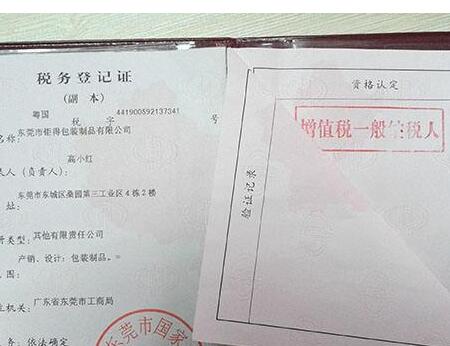 税务登记证
(副 本)
粤国 税 字 441900592137341 号
东莞市钜得包装制品有限公司
名称:
高小红
表人(负责人):
东莞市东城区桑园第三工业区4栋2楼
址:
其他有限责任公司
册类型:
产销、设计:包装制品。=
围:
广东省东莞市工商局
主机关:
依法确定
务:
东莞市国家
资格认定
增值税一般纳税人
验证记录